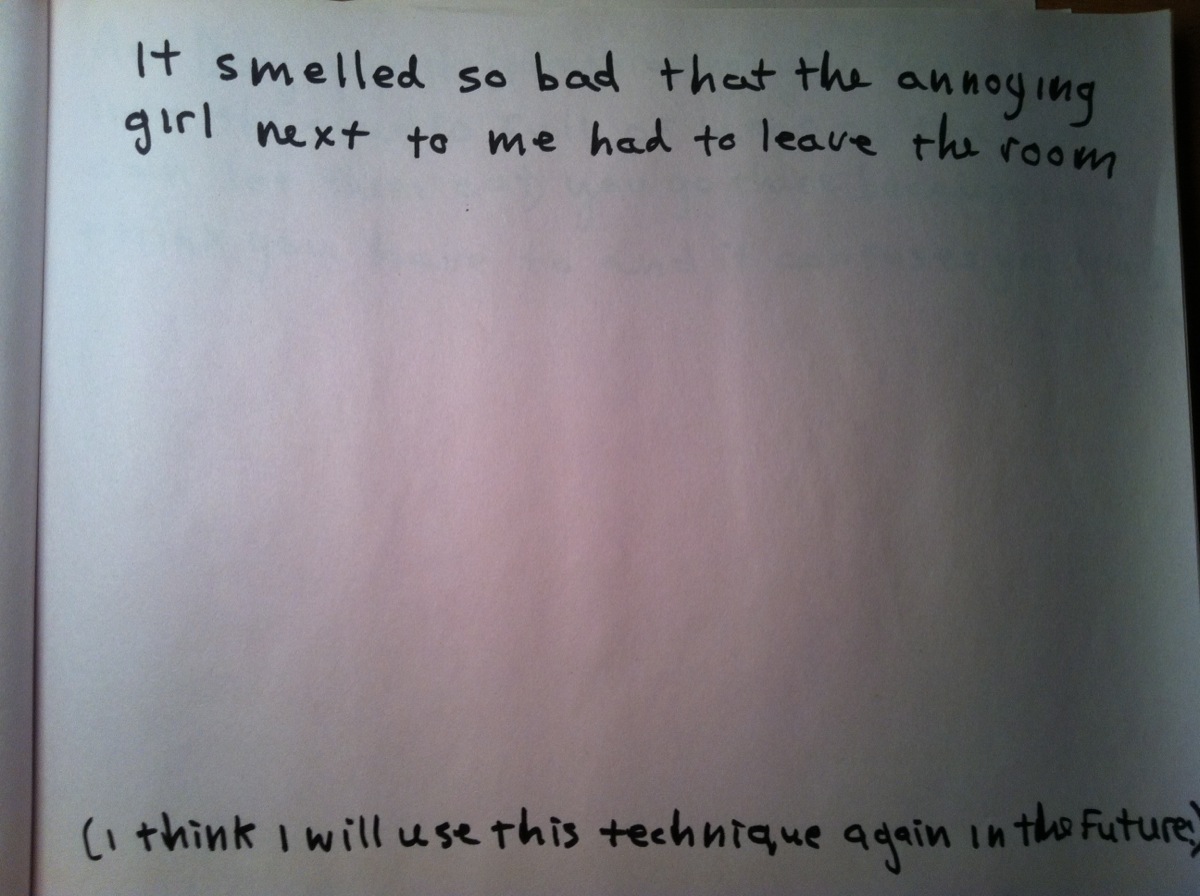 It smelled so bad that the annoying
girl next to me had to leave the room
(I think I will use this technique again in the Future)